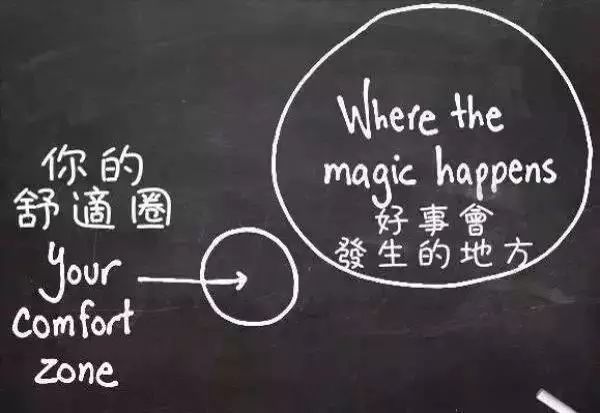 你的
舒適圈
Your
comfort
zone
Where the
magic happens
好事會
發生的地方